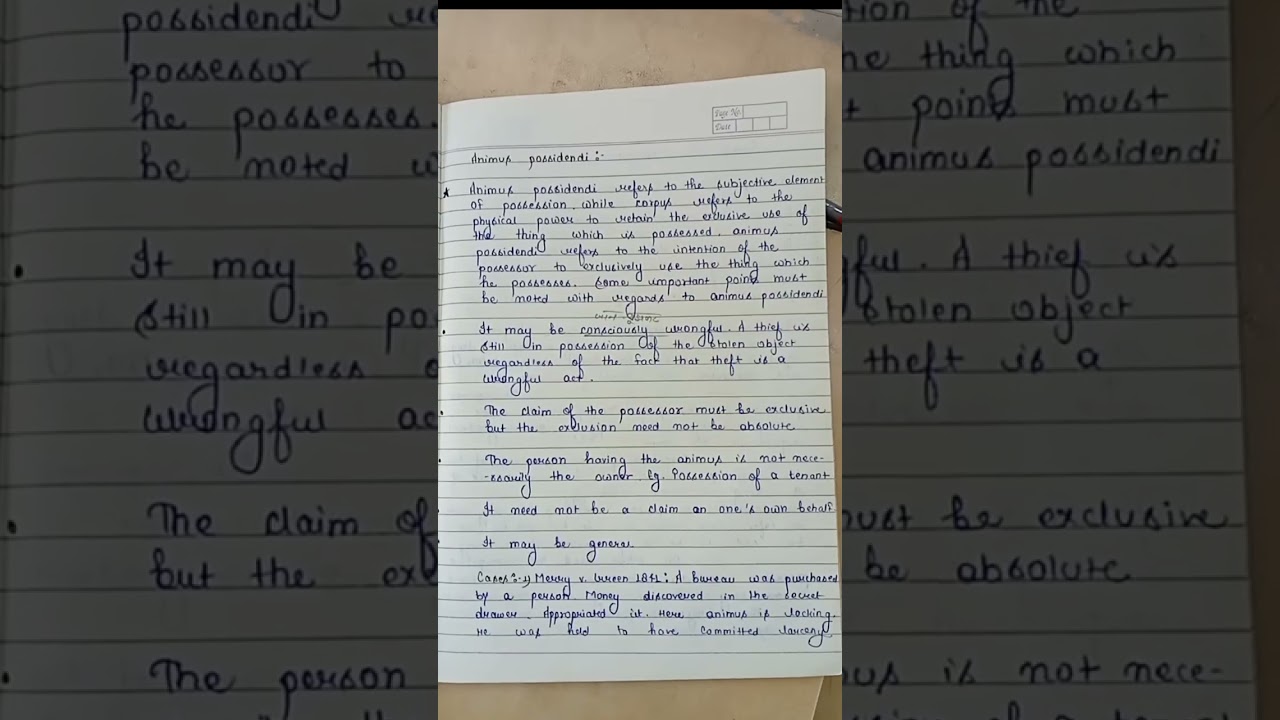 Page No.
Date
Animus possidendi :-
★ Animus possidendi refers to the subjective element
of possession. while corpus refers to the
physical power to retain the exclusive use of
the thing which is possessed. animus
possidendi refers to the intention of the
possessor to exclusively use the thing which
he possesses. Some important point must
be noted with regards to animus possidendi
• It may be consciously wrongful. A thief is
still in possession of the stolen object
regardless of the fact that theft is a
wrongful act.
• The claim of the possessor must be exclusive
but the exclusion need not be absolute
• The person having the animus is not nece-
-ssarily the owner Eg. Possession of a tenant
• It need not be a claim on one's own behalf
• It may be general
Cases:-1) Merry v. Green 1841: A bureau was purchased
by a person. Money discovered in the secret
drawer. Appropriated it. Here animus is lacking.
He was held to have committed larceny